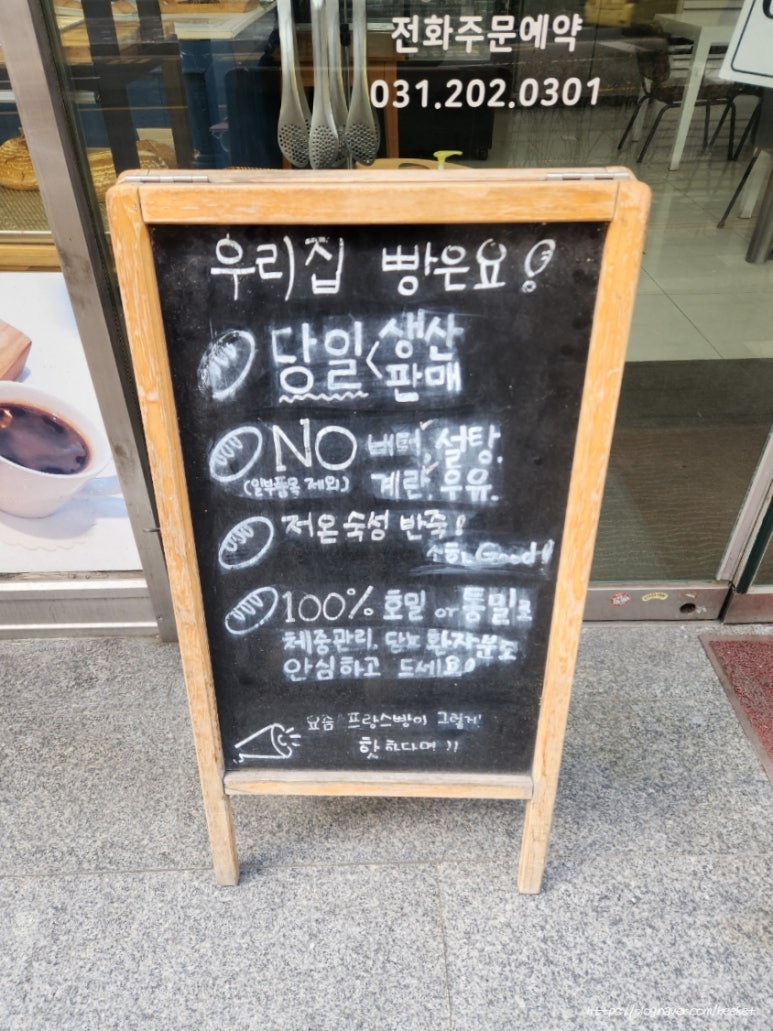 전화주문예약
031.202.0301
우리집 빵은요!
당일<생산
판매
NO 버터, 설탕,
(일부품목 제외) 계란, 우유.
저온 숙성 반죽!
소화 Good!
100% 호밀 or 통밀로
체중관리, 당뇨 환자분도
안심하고 드세요!
요즘 프랑스빵이 그렇게
핫 하다며!!